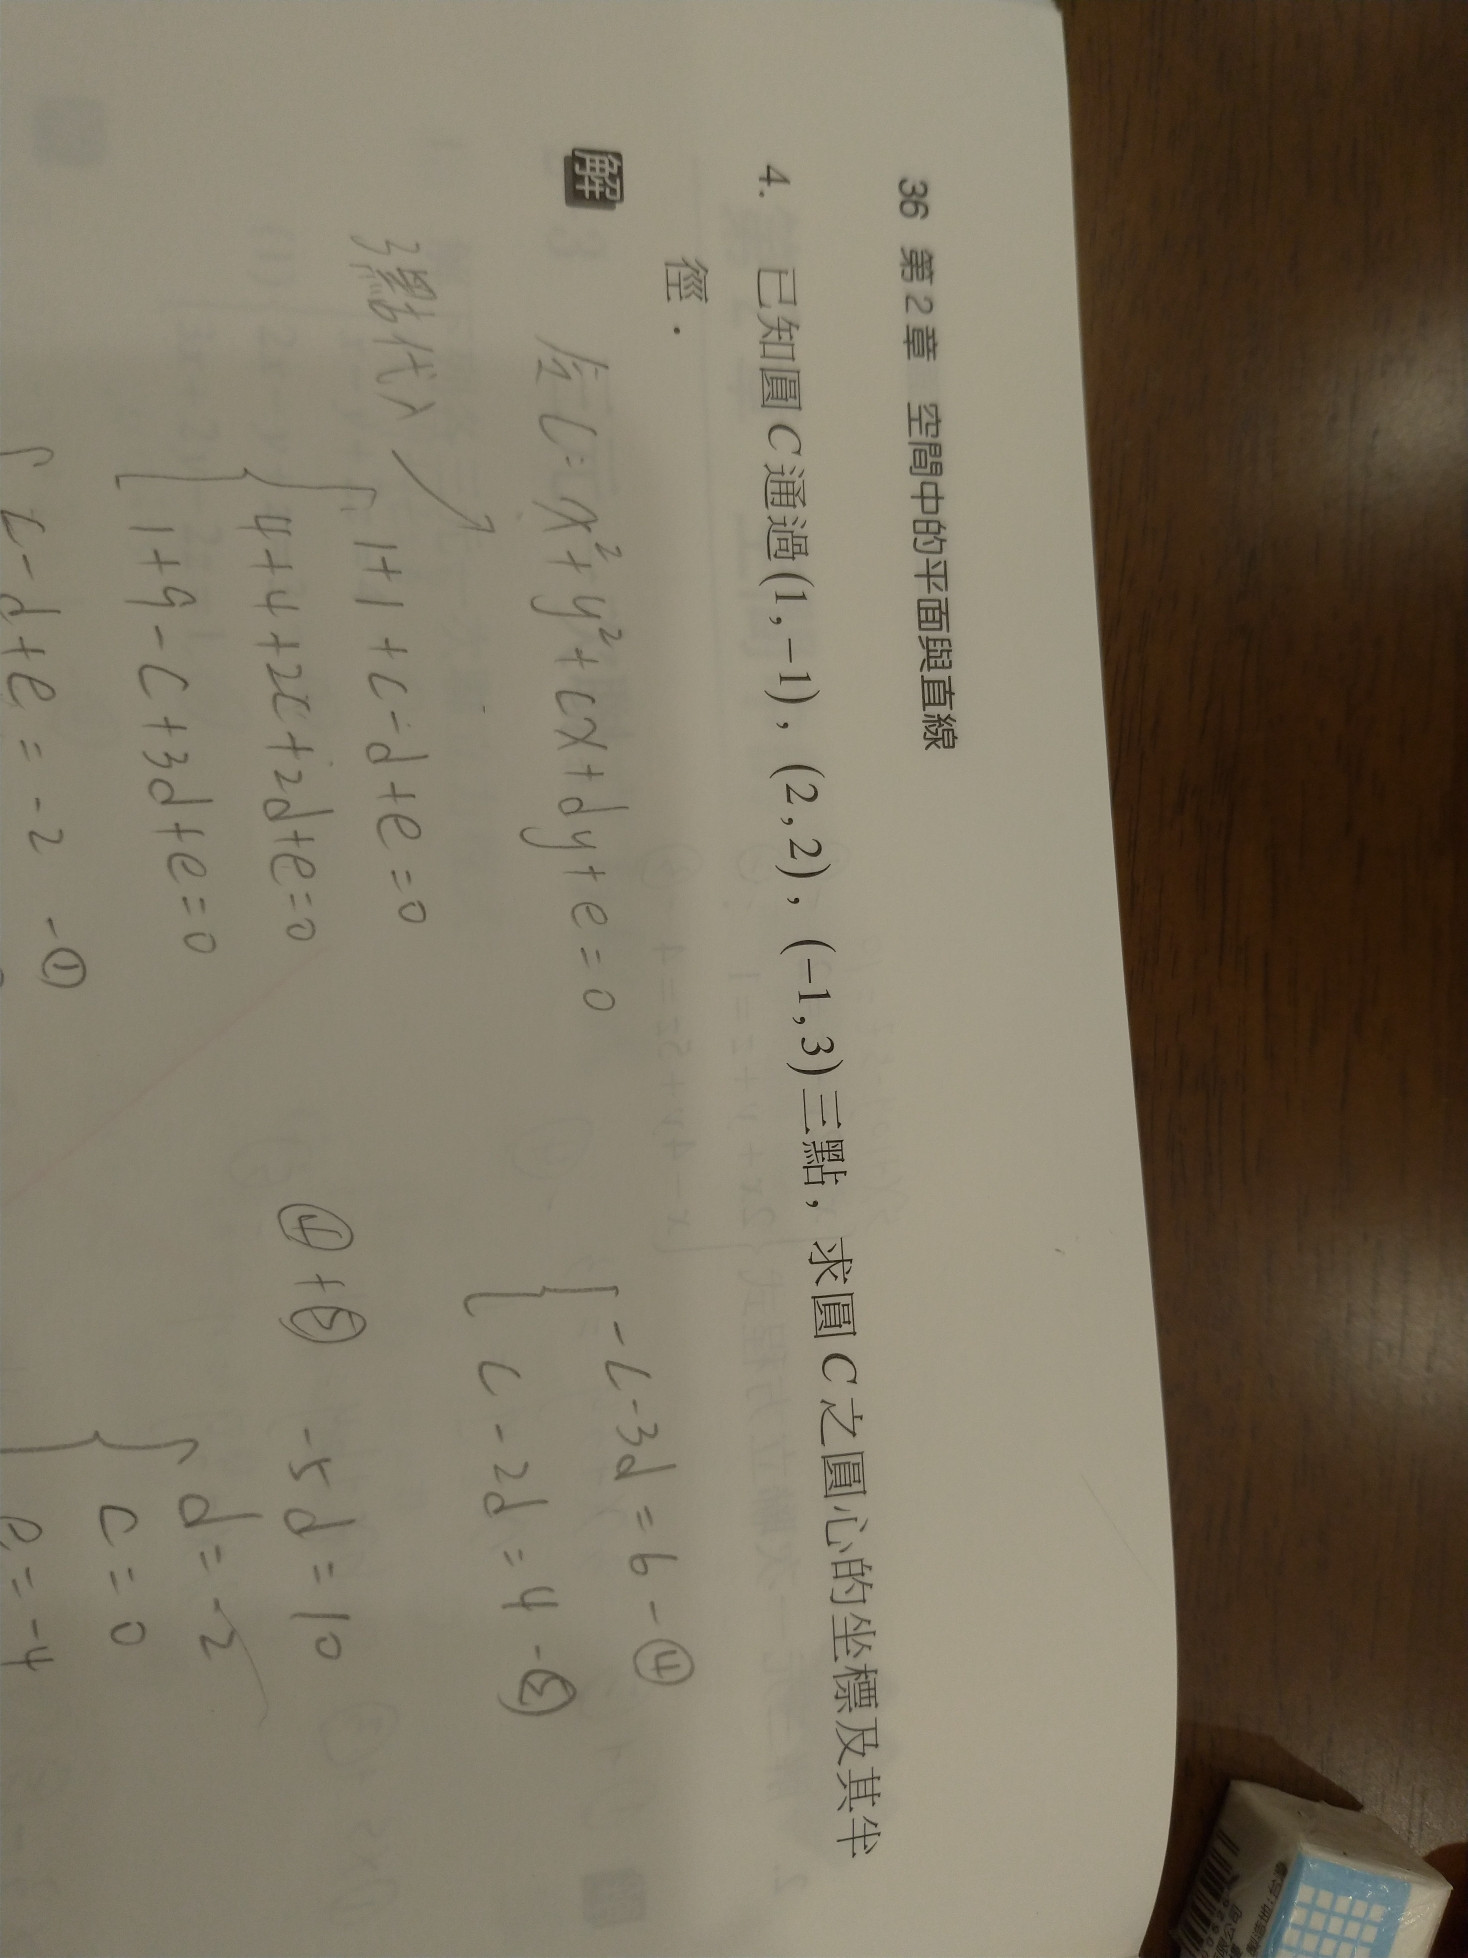 36 第2章 空間中的平面與直線
4. 已知圓C通過(1,-1),(2,2),(-1,3)三點,求圓C之圓心的坐標及其半
徑.
解
C=x²+y²+cx+dy+e=0
3點代入
1+1+c-d+e=0
4+4+2c+2d+e=0
1+9-c+3d+e=0
c-d+e=-2 -①
-c-3d=6-④
c-2d=4-⑤
④+⑤ -5d=10
d=-2
c=0
e=-4